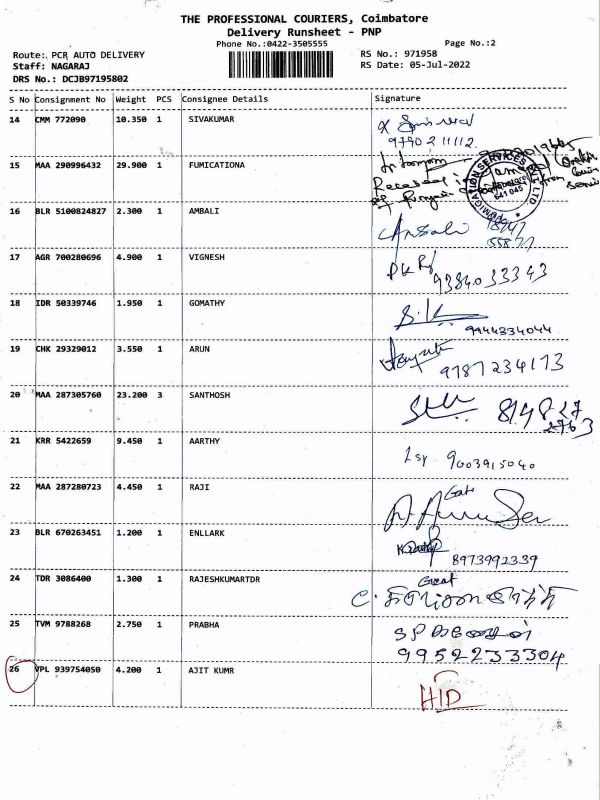 THE PROFESSIONAL COURIERS, Coimbatore
Delivery Runsheet - PNP
Phone No.:0422-3505555 Page No.:2
Route: PCR AUTO DELIVERY RS No.: 971958
Staff: NAGARAJ RS Date: 05-Jul-2022
DRS No.: DCJB97195802
S No Consignment No Weight PCS Consignee Details Signature
14 CMM 772090 10.350 1 SIVAKUMAR
9790211112
15 MAA 290996432 29.900 1 FUMICATIONA
641 045
16 BLR 5100824827 2.300 1 AMBALI
17 AGR 700280696 4.900 1 VIGNESH
9384033343
18 IDR 50339746 1.950 1 GOMATHY
9944334044
19 CHK 29329012 3.550 1 ARUN
9787234173
20 MAA 287305760 23.200 3 SANTHOSH
21 KRR 5422659 9.450 1 AARTHY
9003915040
22 MAA 287280723 4.450 1 RAJI
Gate
23 BLR 670263451 1.200 1 ENLLARK
8973992339
24 TDR 3086400 1.300 1 RAJESHKUMARTDR
25 TVM 9788268 2.750 1 PRABHA
9952233304
26 VPL 939754050 4.200 1 AJIT KUMR
HID